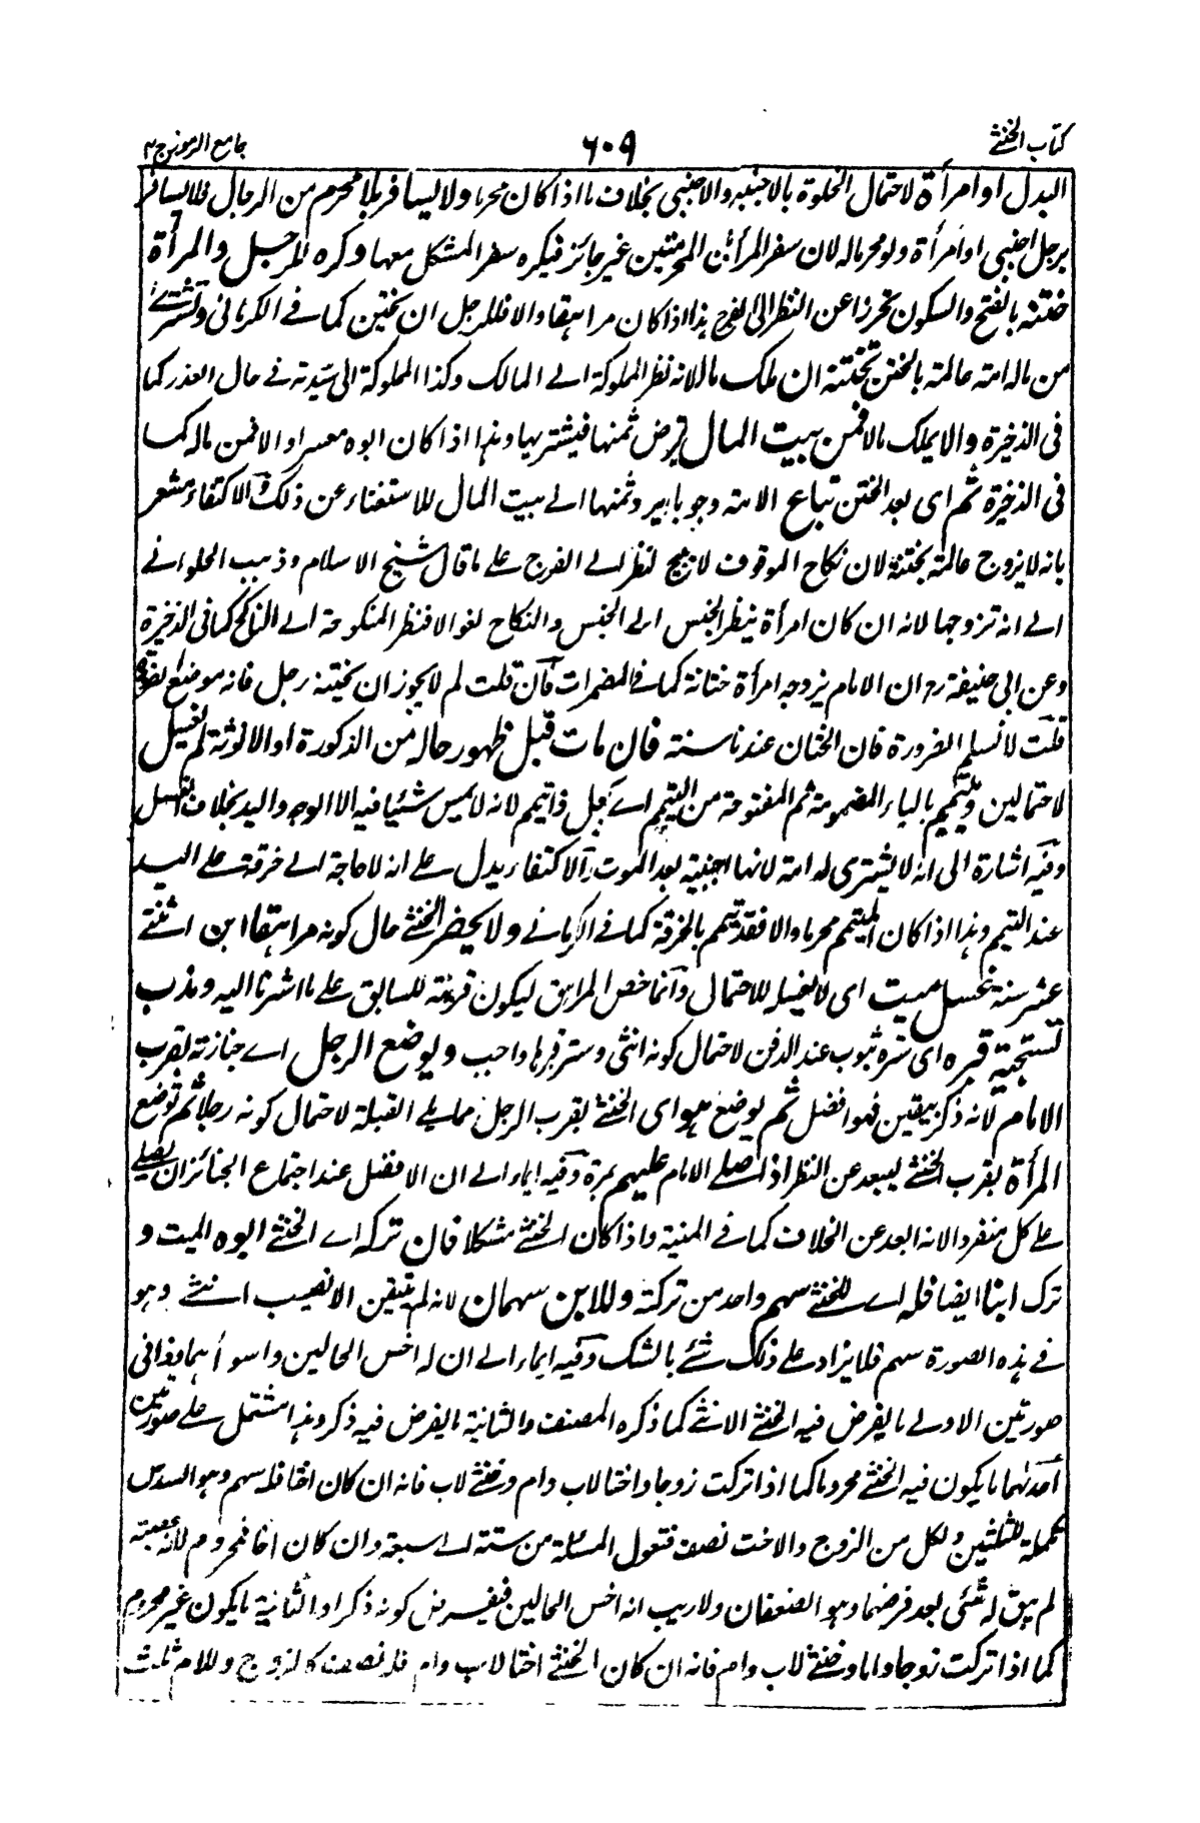 كتاب الخنثے
٦٠٩
جامع الرموز ج ٢
البدل او امرأة لاحتمال الخلوة بالاجنبيه والاجنبى بخلاف ما اذا كان محرما ولا يسافر بلا محرم من الرجال فلا يسافر
برجل اجنبى او امرأة ولو محرما له لان سفر المرأتين المحرمتين غير جائز فيكره سفر المشكل معها وكره للرجل والمرأة
ختنه بالفتح والسكون تحرزا عن النظر الى الفرج هذا اذا كان مراهقا والا فللرجل ان يختن كما فے الكرمانى وتشترے
من ماله امته عالمة بالختن تختنه ان ملك مالا لانه نظر المملوكة الے المالك وكذا المملوكة الى سيدته فے حال العذر كما
فى الذخيرة والا يملك مالا فمن بيت المال قرض ثمنها فيشتريها وهذا اذا كان ابوه معسرا والا فمن ماله كما
فى الذخيرة ثم اى بعد الختن تباع الامة وجوبا ويرد ثمنها الے بيت المال للاستغناء عن ذلك والاكتفاء مشعر
بانه لا يزوج عالمة بختنه لان نكاح الموقوف لا يبيح النظر الے الفرج علے ما قال شيخ الاسلام وذهب الحلوانے
الے انه تزوجها لانه ان كان امرأة ينظر الجنس الى الجنس والنكاح لغو والا فنظر المنكوحة الے الناكح كما فى الذخيرة
وعن ابى حنيفة رح ان الامام يزوجه امرأة ختانة كما فے المضمرات فان قلت لم لا يجوز ان يختنه رجل فانه موضع الضرورة
قلت لا نسلم الضرورة فان الختان عندنا سنة فان مات قبل ظهور حاله من الذكورة او الانوثة لم يغسل
لاحتمالين ويتيمم بالياء المضمومة ثم المفتوحة من التيمم اے يجعل ذا تيمم لانه لا يمس شئيا فيه الا الوجه واليد بخلاف الغسل
وفيه اشارة الى انه لا يشترى له امة لانها اجنبية بعد الموت والاكتفاء يدل علے انه لا حاجة الے خرقة علے اليد
عند التيمم وهذا اذا كان الميمم محرما والا فقد تيمم بالخرقة كما فے الكرمانے ولا يحضر الخنثے حال كونه مراهقا ابن اثنتے
عشر سنة غسل ميت اى لا يغسله للاحتمال وانما خص المراهق ليكون قرينة للسابق علے ما اشرنا اليه وندب
تسجية قبره اى ستره بثوب عند الدفن لاحتمال كونه انثى وستر قبرها واجب ويوضع الرجل اے جنازته بقرب
الامام لانه ذكر بيقين فهو افضل ثم يوضع هو اى الخنثے بقرب الرجل مما يلے القبلة لاحتمال كونه رجلا ثم توضع
المرأة بقرب الخنثے ليبعد عن النظر اذا صلے الامام عليهم بمرة وفيه ايماء الے ان الافضل عند اجتماع الجنائز ان يصلے
علے كل منفردا لانه ابعد عن الخلاف كما فے المنية واذا كان الخنثے مشكلا فان تركه اے الخنثے ابوه الميت و
ترك ابنا ايضا فله اے للخنثے سهم واحد من تركته وللابن سهمان لانه لم يتيقن الا نصيب انثے وهو
فے هذه الصورة سهم فلا يزاد علے ذلك شئے بالشك وفيه ايماء الے ان له اخس الحالين واسوأهما وذا فى
صورتين الاولے ما يفرض فيه الخنثے الانثے كما ذكره المصنف والثانية ما يفرض فيه ذكر وهذا مشتمل علے صورتين
احدٮهما ما يكون فيه الخنثے محروما كما اذا تركت زوجا واختا لاب وام وخنثے لاب فانه ان كان اختا فله سهم وهو السدس
تكملة للثلثين ولكل من الزوج والاخت نصف فتعول المسئلة من ستة الے سبعة وان كان اخا فمحروم لانه عصبة
لم يبق له شئى بعد فرضهما وهو النصفان ولا ريب انه اخس الحالين فيفرض كونه ذكرا والثانية ما يكون غير محروم
كما اذا تركت زوجا واما وخنثے لاب وام فانه ان كان الخنثے اختا لاب وام فله نصف كالزوج وللام ثلث